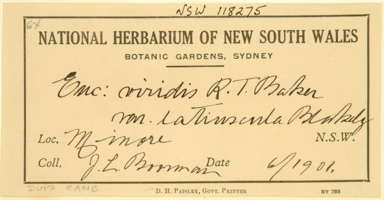 NSW 118275
6x
NATIONAL HERBARIUM OF NEW SOUTH WALES
BOTANIC GARDENS, SYDNEY
Euc: viridis R.T. Baker
var. latiuscula Blakely
Loc. Minore N.S.W.
Coll. J.L. Boorman Date 6/1901.
DUPS CANB
D. H. PAISLEY, GOVT. PRINTER
ST 768